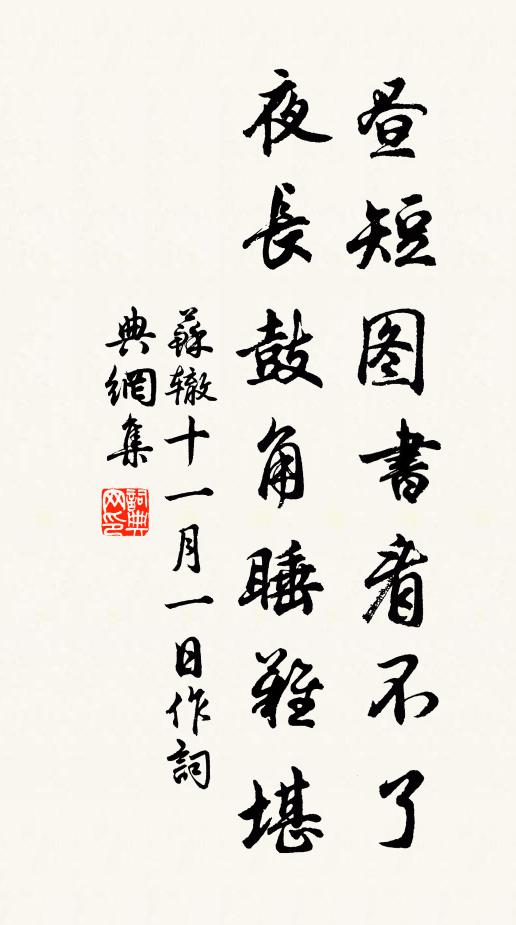 昼短图書看不了
夜長鼓角睡難堪
蘇辙十一月一日作詞
典網集
詞典网印